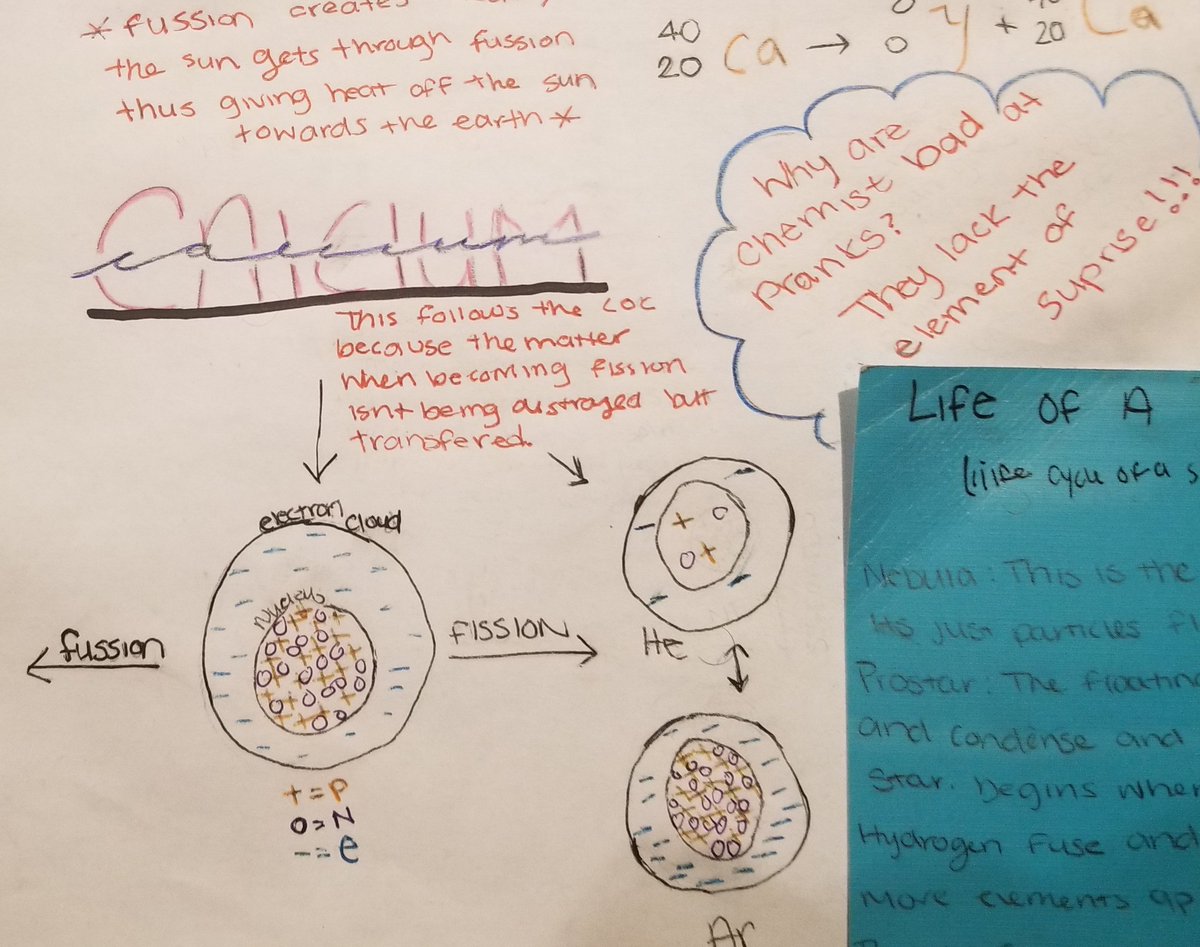 * fussion creates
the sun gets through fussion
thus giving heat off the sun
towards the earth *
40
20 Ca → 0 γ + 20 Ca
Why are
chemist bad at
pranks?
They lack the
element of
suprise!!!
CALCIUM
calcium
This follows the LOC
because the matter
when becoming fission
isnt being distroyed but
transfered.
electron cloud
nucleus
fussion
FISSION
+ = P
o = N
- = e
He
Ar
Life Of A
(life cycle of a s
Nebula: This is the
Its just particles fl
Prostar: The floatin
and condense and
Star. Begins when
Hydrogen Fuse and
More elements ap